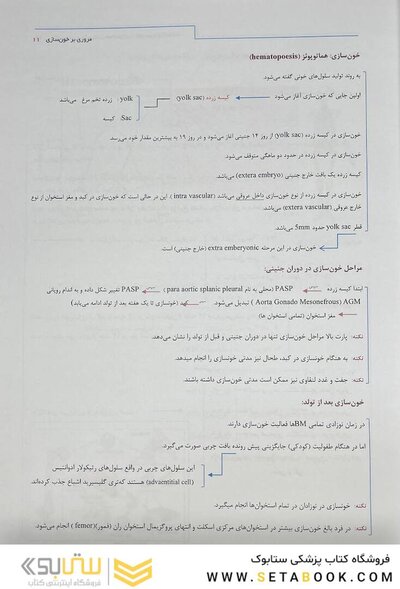 مروری بر خون‌سازی ۱۱
خون‌سازی: هماتوپوئز (hematopoesis)
به روند تولید سلول‌های خونی گفته می‌شود.
اولین جایی که خون‌سازی آغاز می‌شود کیسه زرده (yolk sac) yolk زرده تخم مرغ می‌باشد
Sac کیسه
خون‌سازی در کیسه زرده (yolk sac) از روز ۱۴ جنینی آغاز می‌شود و در روز ۱۹ به بیشترین مقدار خود می‌رسد.
خون‌سازی در کیسه زرده در حدود دو ماهگی متوقف می‌شود.
کیسه زرده یک بافت خارج جنینی (extera embryo) می‌باشد.
خون‌سازی در کیسه زرده از نوع خون‌سازی داخل عروقی می‌باشد (intra vascular). این در حالی است که خون‌سازی در کبد و مغز استخوان از نوع
خارج عروقی (extera vascular) می‌باشد.
قطر yolk sac حدود 5mm می‌باشد.
خون‌سازی در این مرحله extra emberyonic (خارج جنینی) است.
مراحل خون‌سازی در دوران جنینی:
ابتدا کیسه زرده PASP (محلی به نام para aortic splanic pleural) PASP تغییر شکل داده و به اندام رویانی
AGM (Aorta Gonado Mesonefrous) تبدیل می‌شود. (خونسازی تا یک هفته بعد از تولد ادامه می‌یابد)
مغز استخوان (تمامی استخوان ها)
نکته: پارت بالا مراحل خون‌سازی تنها در دوران جنینی و قبل از تولد را نشان می‌دهد.
نکته: به هنگام خونسازی در کبد، طحال نیز مدتی خونسازی را انجام میدهد.
نکته: جفت و غدد لنفاوی نیز ممکن است مدتی خون‌سازی داشته باشند.
خون‌سازی بعد از تولد:
در زمان نوزادی تمامی BMها فعالیت خون‌سازی دارند.
اما در هنگام طفولیت (کودکی) جایگزینی پیش رونده بافت چربی صورت می‌گیرد.
این سلول‌های چربی در واقع سلول‌های رتیکولار ادوانتیس
(advaentitial cell) هستند که‌تری گلیسیرید اشباع جذب کرده‌اند.
نکته: خونسازی در نوزادان در تمام استخوان‌ها انجام میگیرد.
نکته: در فرد بالغ خون‌سازی بیشتر در استخوان‌های مرکزی اسکلت و انتهای پروگزیمال استخوان ران (فمور)(femor) انجام می‌شود.
فروشگاه کتاب پزشکی ستابوک
WWW.SETABOOK.COM
ستابوک
فروشگاه اینترنتی کتاب